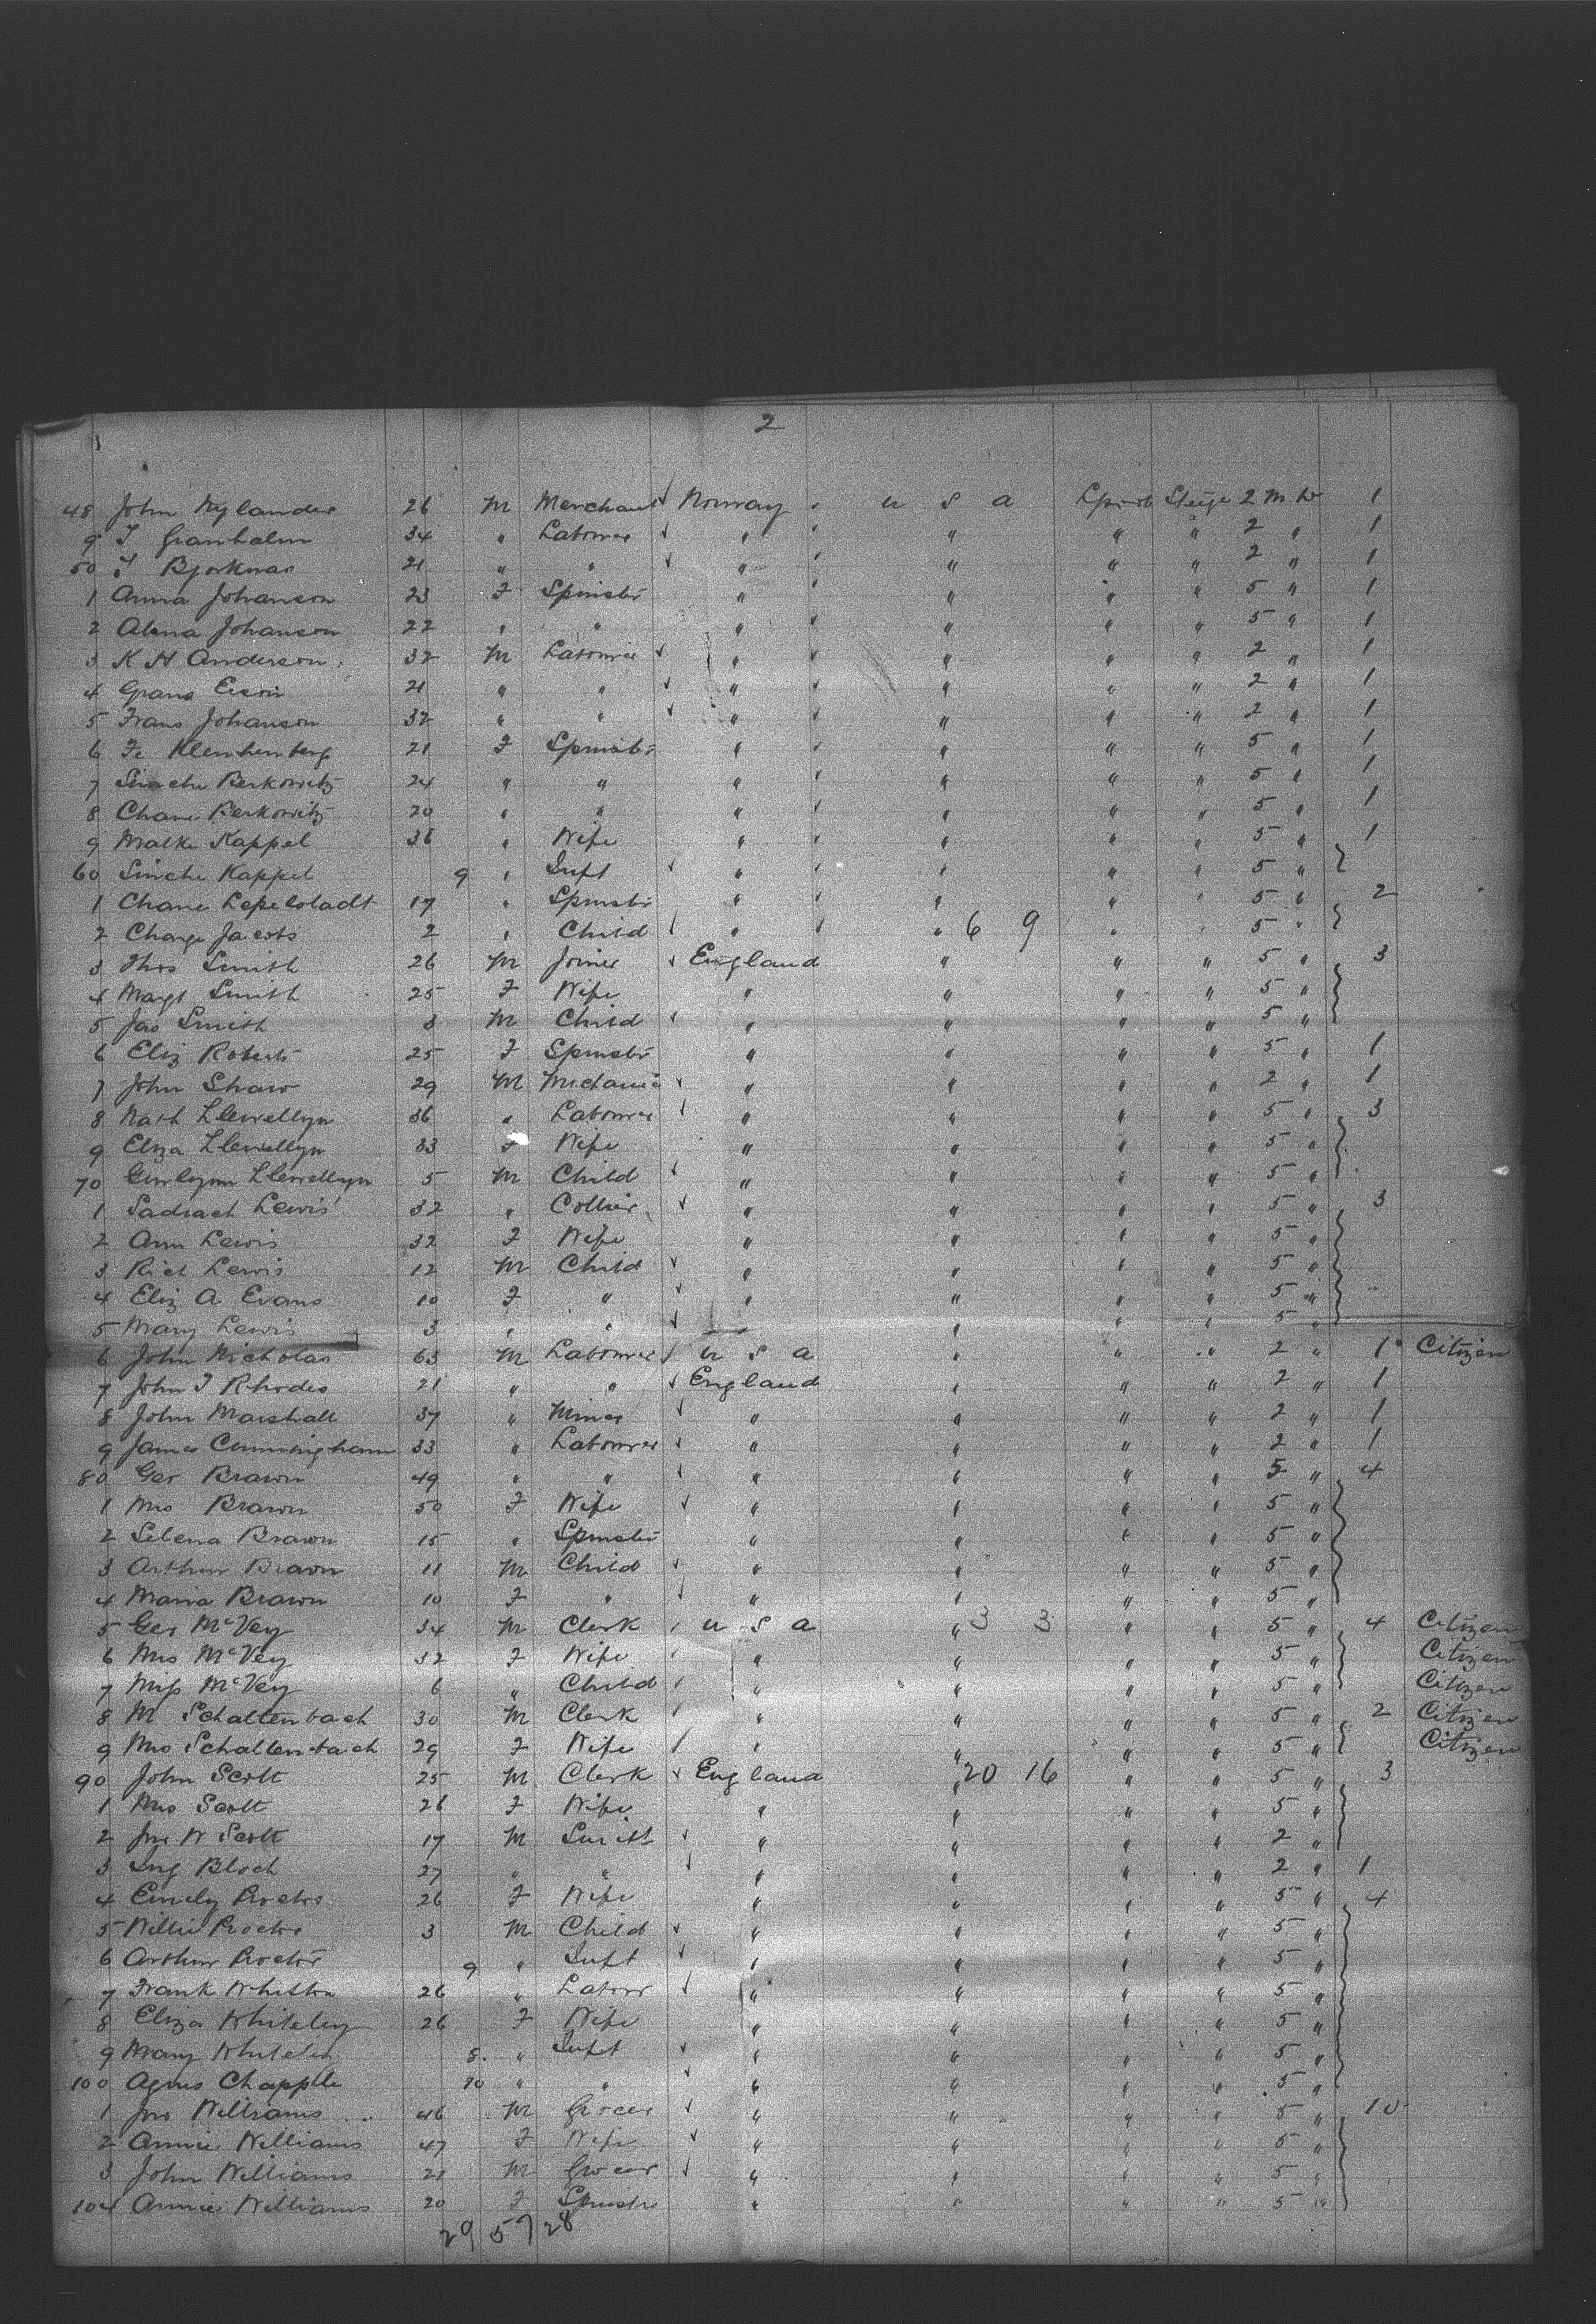 2
48 John Nylander 26 M Merchant Norway " U S A Lpool Steige 2 M W 1
9 J Granholm 34 " Labourer " " " " 2 " 1
50 J Bjorkman 21 " " " " " " 2 " 1
1 Anna Johanson 23 F Spinster " " " " 5 " 1
2 Alena Johanson 22 " " " " " " 5 " 1
3 K H Anderson 32 M Labourer " " " " 2 " 1
4 21 " " " " " " 2 " 1
5 Frans Johanson 32 " " " " " " 2 " 1
6 21 F Spinster " " " " 5 " 1
7 Berkowitz 24 " " " " " " 5 " 1
8 Chane Berkowitz 20 " " " " " " 5 " 1
9 Malke Kappel 36 " Wife " " " " 5 " 1
60 Kappel 9 " Inft " " " " 5 "
1 Chane 17 " Spinster " " " " 5 " 2
2 Jacobs 2 " Child " " 6 9 " " 5 "
3 Thos Smith 26 M Joiner England " " " 5 " 3
4 Margt Smith 25 F Wife " " " " 5 "
5 Jas Smith 3 M Child " " " " 5 "
6 Eliz Roberts 25 F Spinster " " " " 5 " 1
7 John Shaw 29 M Mechanic " " " " 2 " 1
8 Nath Llewellyn 36 " Labourer " " " " 5 " 3
9 Eliza Llewellyn 33 F Wife " " " " 5 "
70 Llewellyn 5 M Child " " " " 5 "
1 Sadrach Lewis 32 " Collier " " " " 5 " 3
2 Ann Lewis 32 F Wife " " " " 5 "
3 Rich Lewis 12 M Child " " " " 5 "
4 Eliz A Evans 10 F " " " " " 5 "
5 Mary Lewis 3 " " " " " " 5 "
6 John Nicholas 63 M Labourer U S A " " " 2 " 1 Citizen
7 John T Rhodes 21 " " England " " " 2 " 1
8 John Marshall 37 " Miner " " " " 2 " 1
9 James Cunningham 33 " Labourer " " " " 2 " 1
80 Geo Brawn 49 " " " " " " 5 " 4
1 Mrs Brawn 50 F Wife " " " " 5 "
2 Selena Brawn 15 " Spinster " " " " 5 "
3 Arthur Brawn 11 M Child " " " " 5 "
4 Maria Brawn 10 F " " " " " 5 "
5 Geo McVey 34 M Clerk U S A " 3 3 " " 5 " 4 Citizen
6 Mrs McVey 32 F Wife " " " " 5 " Citizen
7 Miss McVey 6 " Child " " " " 5 " Citizen
8 M Schallenbach 30 M Clerk " " " " 5 " 2 Citizen
9 Mrs Schallenbach 29 F Wife " " " " 5 " Citizen
90 John Scott 25 M Clerk England " 20 16 " " 5 " 3
1 Mrs Scott 26 F Wife " " " " 5 "
2 Jno W Scott 17 M Smith " " " " 2 "
3 Bloch 27 " " " " " " 2 " 1
4 Emily Proctor 26 F Wife " " " " 5 " 4
5 Willie Proctor 3 M Child " " " " 5 "
6 Arthur Proctor 9 " Inft " " " " 5 "
7 Frank 26 " Labour " " " " 5 "
8 Eliza Whiteley 26 F Wife " " " " 5 "
9 Mary 8 " Inft " " " " 5 "
100 Agnes Chapple 10 " " " " " " 5 "
1 Jno Williams 46 M Grocer " " " " 5 " 10
2 Annie Williams 47 F Wife " " " " 5 "
3 John Williams 21 M Grocer " " " " 5 "
104 Annie Williams 20 F Spinster " " " " 5 "
29 57 28